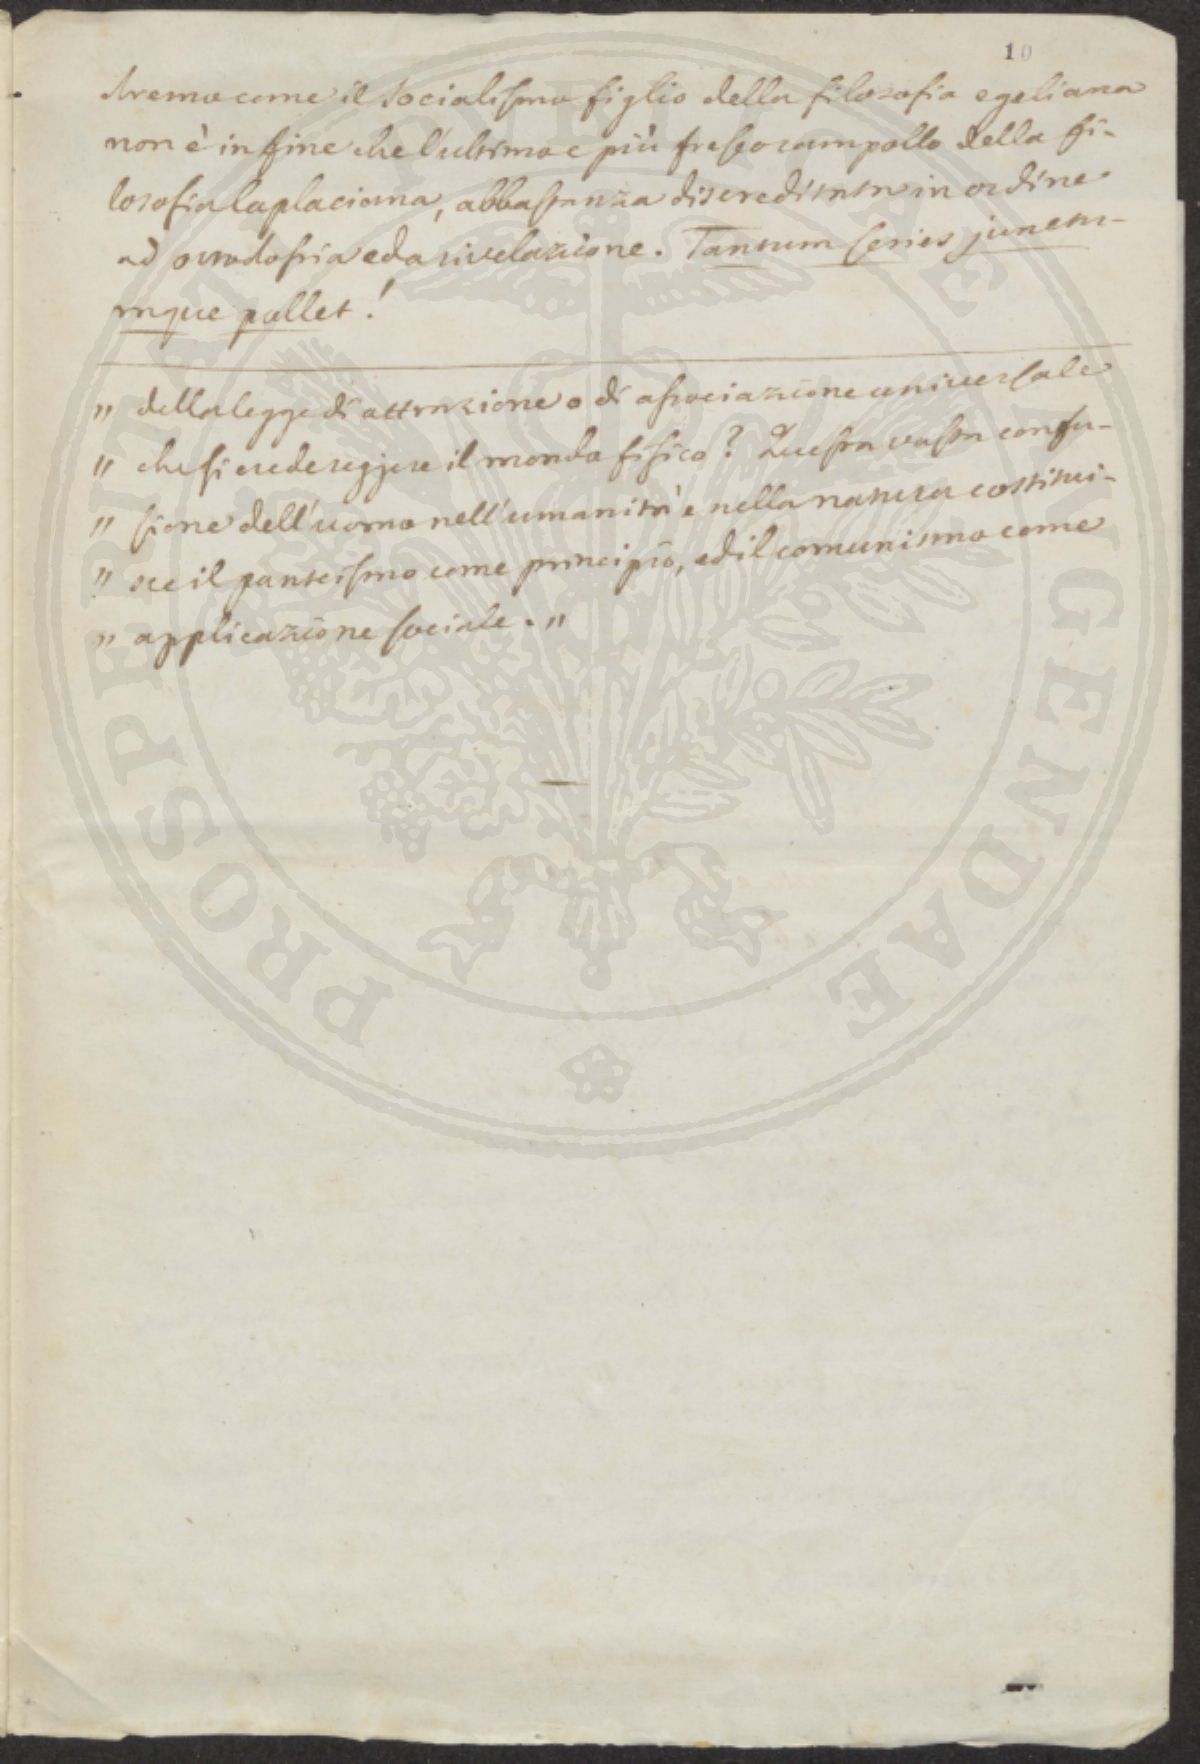 10
dremo come il socialismo figlio della filosofia egeliana
non è infine che l'ultimo e più fresco rampollo della fi-
losofia laplaciana, abbastanza discreditata in ordine
ad ortodossia ed a rivelazione. Tantum series junctu-
raque pollet!
" della legge di attrazione o di associazione universale
" che si crede reggere il mondo fisico? Questa vasta confu-
" sione dell'uomo nell'umanità e nella natura costitui-
" sce il panteismo come principio, ed il comunismo come
" applicazione sociale. "
PROSPERITATI PUBLICAE AUGENDAE